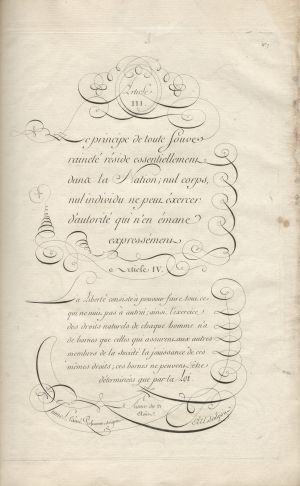 Article
III.
Le principe de toute Souve
raineté réside essentiellement
dans la Nation; nul corps,
nul individu ne peut éxercer
d'autorité qui n'en émane
expressément.
Article IV.
La Liberté consiste à pouvoir faire tout ce
qui ne nuit pas à autrui; ainsi l'exercice
des droits naturels de chaque homme n'a
de bornes que celles qui assurent aux autres
membres de la société la jouissance de ces
mêmes droits; ces bornes ne peuvent être
déterminées que par la Loi.